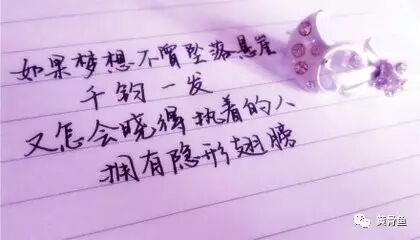 如果梦想不曾坠落悬崖
千钧一发
又怎会晓得执着的人
拥有隐形翅膀
黄骨鱼